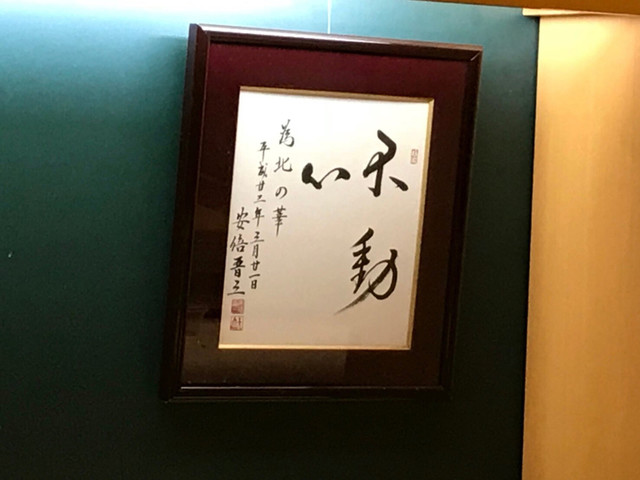 不動
心
為北の華
平成廿二年三月廿一日
安倍晋三